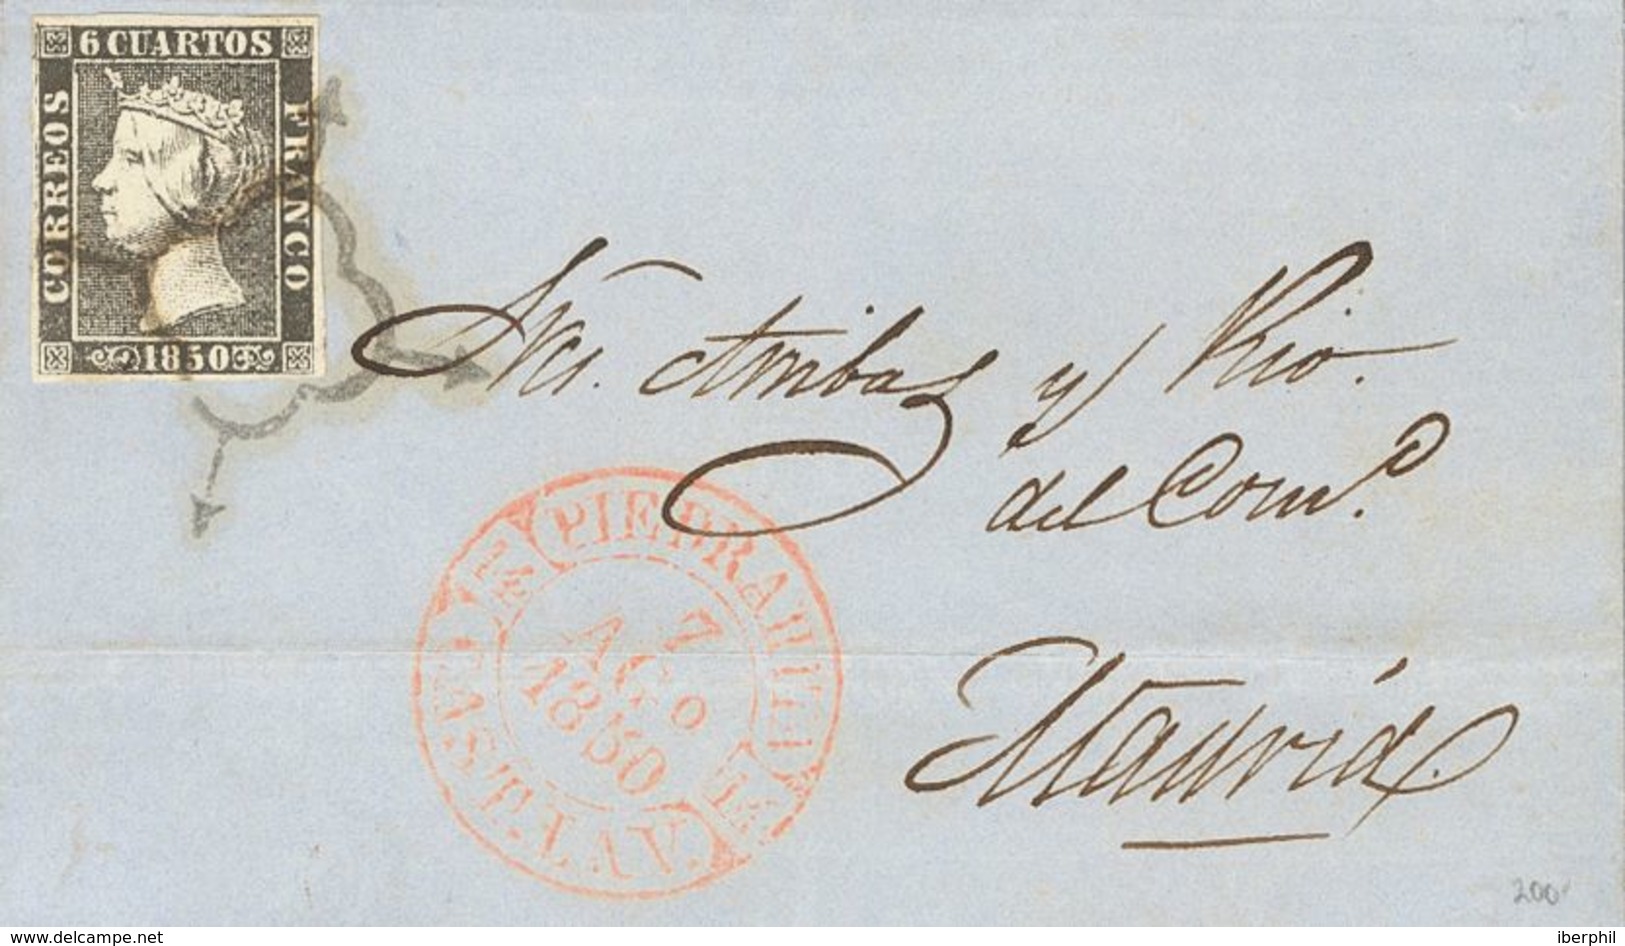 6 CUARTOS
CORREOS
FRANCO
1850
y Rio.
del Com.º
Madrid.
PIEDRAHITA
7
AGO
1850
CAST. LA V.
200
www.delcampe.net
iberphil